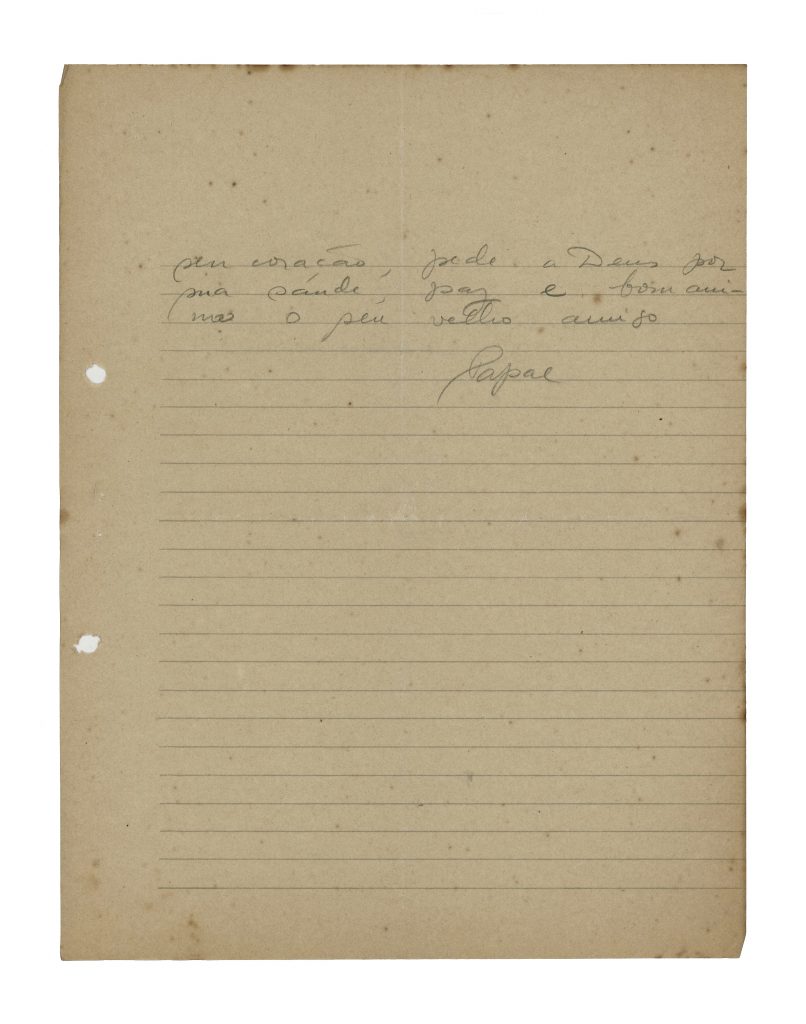 seu coração, pede a Deus por
sua sáude, paz e bom ani-
mo o seu velho amigo
Papae